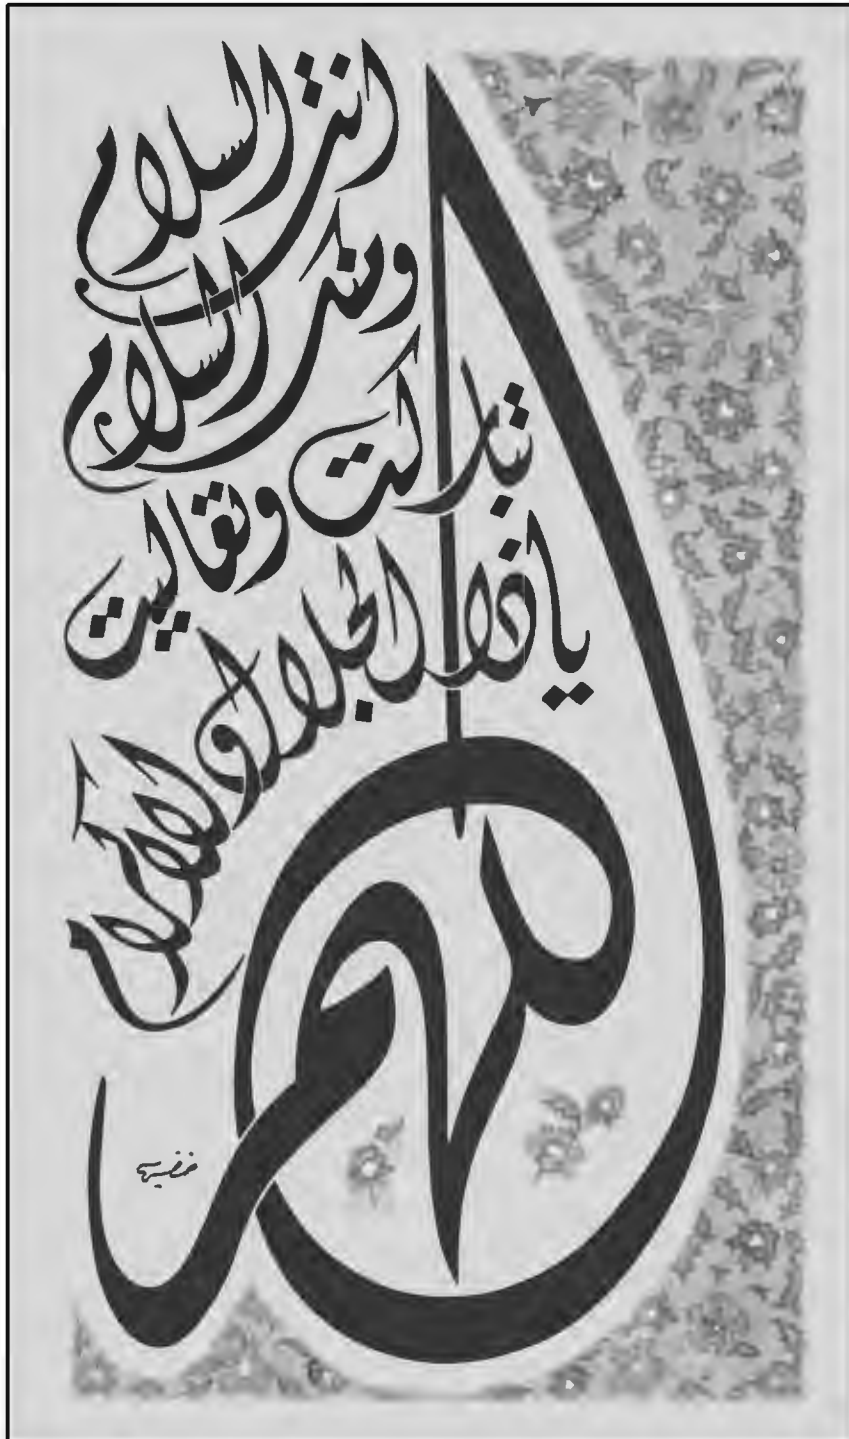 اللهم
انت السلام
ومنك السلام
تباركت وتعاليت
ياذا الجلال والاكرام